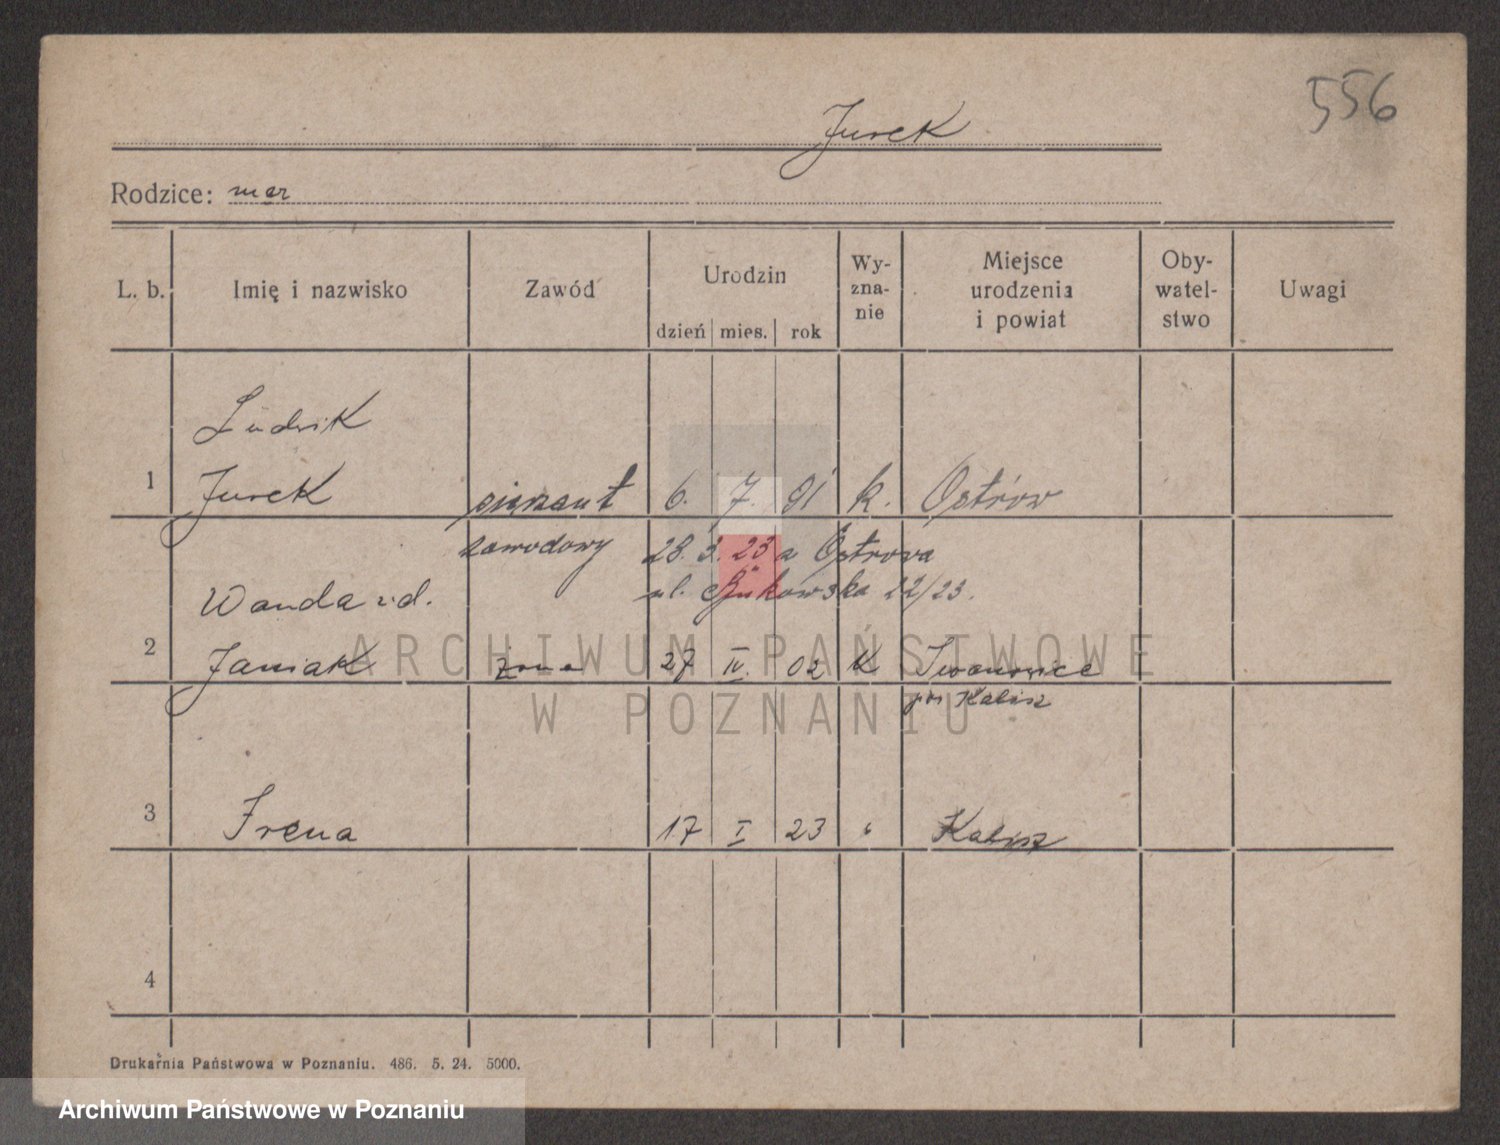 556
Jurek
Rodzice: mar
L. b. Imię i nazwisko Zawód Urodzin dzień mies. rok Wy-zna-nie Miejsce urodzenia i powiat Oby-watel-stwo Uwagi
Ludwik
1 Jurek sierżant 6. 7. 91 k. Ostrów
zawodowy 28. 3. 23 z Ostrowa
Wanda ul. 22/23.
2 Janiak żona 27 IV. 02 K Iwanowice
Kalisz
3 Irena 17 I 23 " Kalisz
4
Drukarnia Państwowa w Poznaniu. 486. 5. 24. 5000.
ARCHIWUM PAŃSTWOWE
W POZNANIU
Archiwum Państwowe w Poznaniu